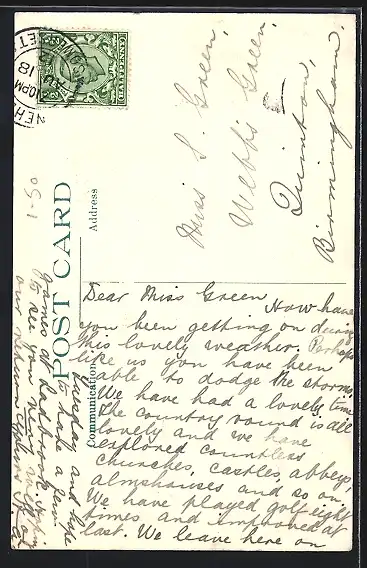 POST CARD
Address
Communication
HALFPENNY
10 PM
AU 18
Miss S. Green,
Webb's Green,
Quinton,
Birmingham.
Dear Miss Green
How have
you been getting on during
this lovely weather. Perhaps
like us you have been
able to dodge the storms.
We have had a lovely time.
The country round is all
lovely and we have
explored countless
churches, castles, abbeys,
almshouses and so on
We have played golf eight
times and improved at
last. We leave here on
Tuesday and hope
to have a few
games at
to see you
our return